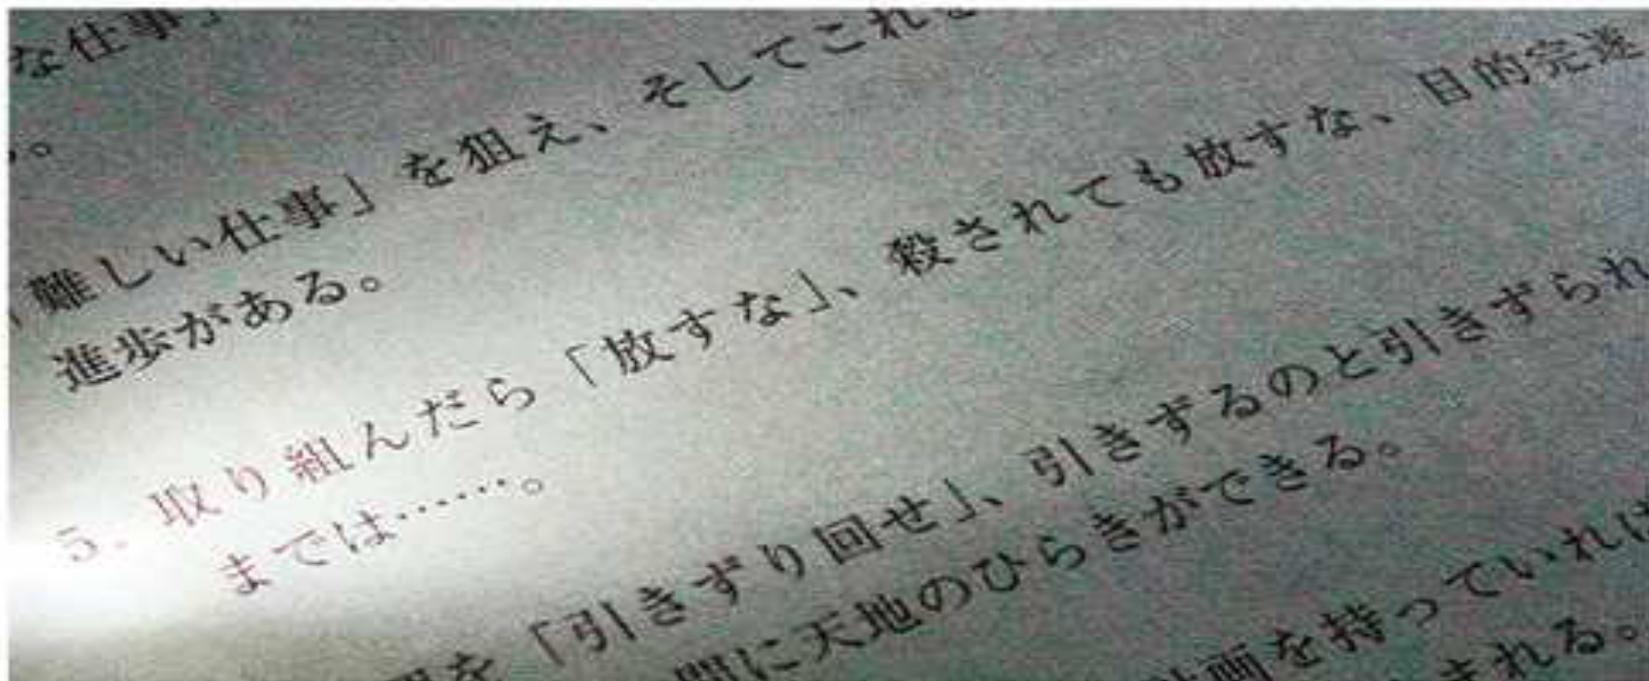 な仕事」
。
「難しい仕事」を狙え、そしてこれを
進歩がある。
5. 取り組んだら「放すな」、殺されても放すな、目的完遂
までは……。
を「引きずり回せ」、引きずるのと引きずられ
間に天地のひらきができる。
計画を持っていれば
まれる。